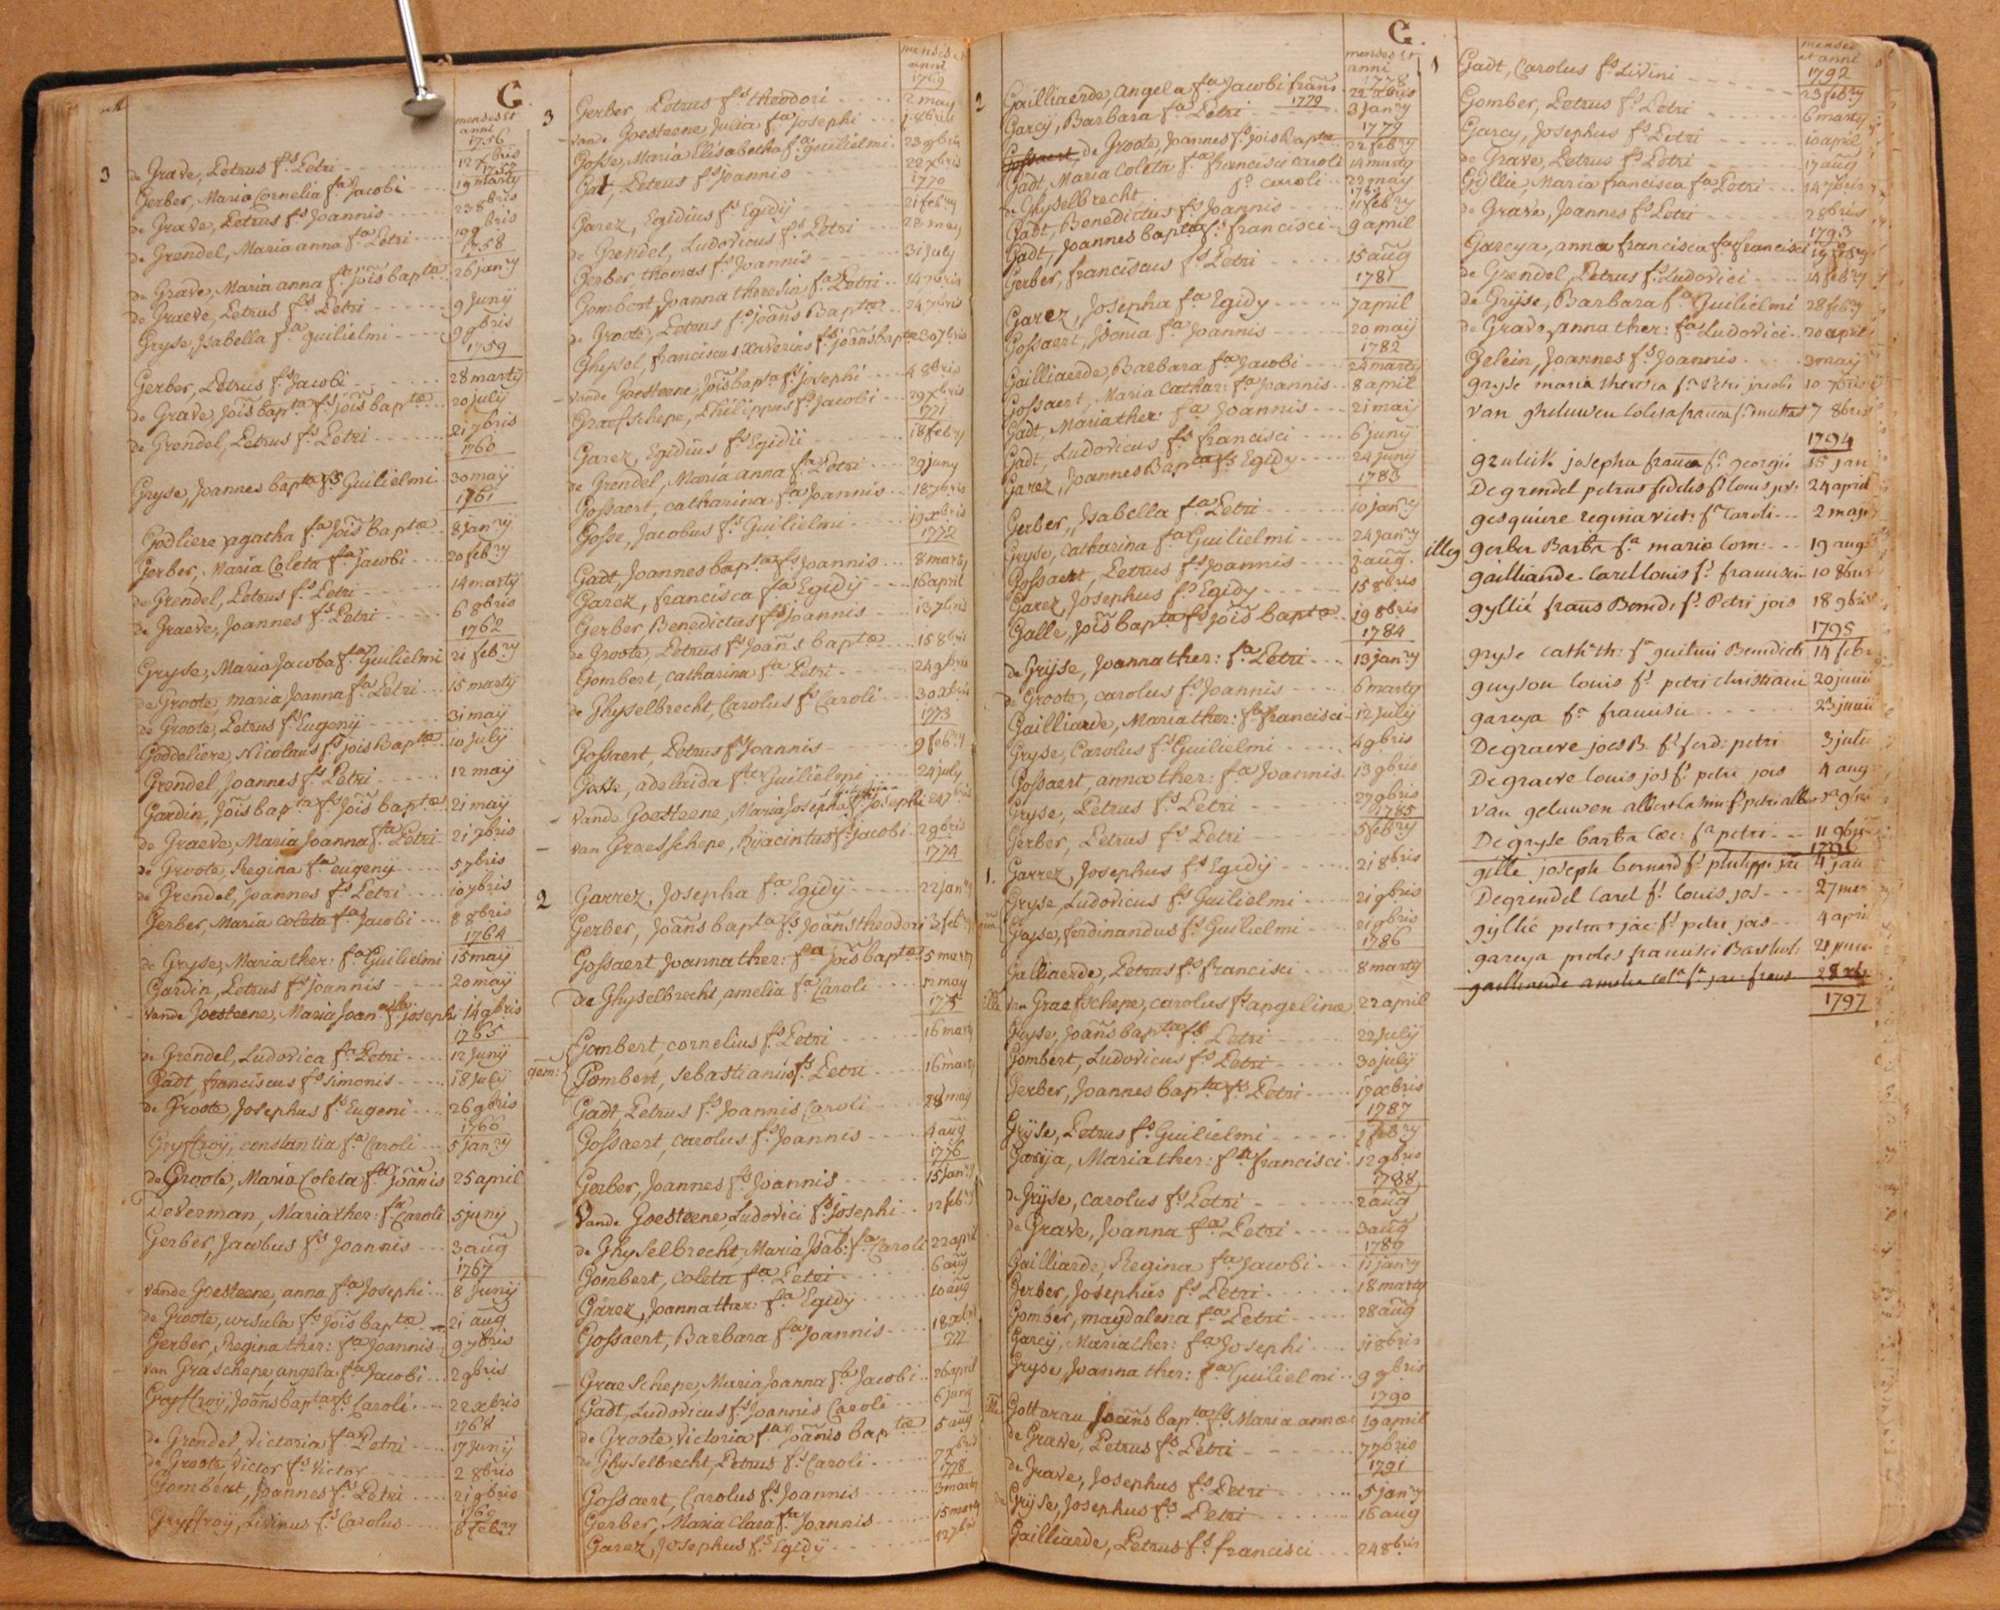 G.
menses et
anni
1756
3 de Grave, Petrus fs Petri 12 xbris
1757
Gerber, Maria Cornelia fa Jacobi 19 marty
de Graeve, Petrus fs Joannis 23 8bris
de Grendel, Maria anna fa Petri 10 9bris
1758
de Grave, Maria anna fa Jois bapta 26 janry
de Graeve, Petrus fs Petri 9 Junij
Gryse, Isabella fa guilielmi 9 9bris
1759
Gerber, Petrus fs Jacobi 28 marty
de Grave, Jois bapta fs jois baptae 20 july
de Grendel, Petrus fs Petri 21 7bris
1760
Gryse, Joannes bapta fs Guilielmi 30 maij
1761
Godliere agatha fa Jois Baptae 8 Janry
Gerber, Maria Coleta fa Jacobi 20 febry
de Grendel, Petrus fs Petri 14 marty
de Graeve, Joannes fs Petri 6 8bris
1762
Gryse, Maria Jacoba fa Guilielmi 21 febry
de Groote, maria Joanna fa Petri 15 marty
de Groote, Petrus fs Eugenij 31 maij
Goddeliere, Nicolaus fs jois baptae 10 July
Grendel Joannes fs Petri 12 maij
Gardin, Jois bapta fs Jois baptae 21 maij
de Graeve, Maria Joanna fa Petri 21 9bris
de Groote, Regina fa eugenij 5 7bris
de Grendel, Joannes fs Petri 10 7bris
Gerber, Maria Coleta fa Jacobi 8 8bris
1764
de Gryse, Maria ther: fa Guilielmi 15 maij
Gardin, Petrus fs Joannis 20 maij
vande Joesteene, Maria Joan fa josephi 14 9bris
1765
de Grendel, Ludovica fa Petri 12 Junij
Gadt franciscus fs Simonis 18 July
de Groote, Josephus fs Eugeni 26 9bris
1766
Gryffroij, constantia fa Caroli 5 janry
de Groote, Maria Coleta fa Joannis 25 april
Maria ther: fa Caroli 5 junij
Gerber, Jacobus fs Joannis 3 aug
1767
vande Goesteene, anna fa Josephi 8 Junij
de Groote, ursula fa Jois baptae 21 aug
Gerber, Regina ther: fa Joannis 9 7bris
van Graschepe, angela fa Jacobi 2 9bris
Gryffroij, Joannes bapta fs Caroli 22 xbris
1768
de Grendel, Victoria fa Petri 17 Junij
de Groote Victor fs Victor 2 8bris
Gombert, Joannes fs Petri 21 9bris
1769
Gryffroij, Livinus fs Carolus 8 febry
menses et
anni
1769
3 Gerber Petrus fs theodori 2 maij
vande Goesteene, Julia fa Josephi 1 8bris
Gosse, Maria Elisabetha fa guilielmi 23 9bris
Gat, Petrus fs Joannis 22 xbris
1770
Garez, Egidius fs Egidij 21 febry
de Grendel, Ludovicus fs Petri 28 maij
Gerber thomas fs Joannis 31 july
Gombert, Joanna theresia fa Petri 14 7bris
de Groote, Petrus fs joans Baptae 24 7bris
Ghysel, franciscus Xaverius fs Joans baptae 30 7bris
vande Goesteene, Jois bapta fs josephi 4 8bris
Graefschepe, Philippus fs Jacobi 29 xbris
1771
Garez, Egidius fs Egidii 18 febry
de Grendel, Maria anna fa Petri 29 juny
Gossaert, catharina fa Joannis 18 7bris
Gosse, Jacobus fs Guilielmi 19 xbris
1772
Gadt, Joannes bapta fs Joannis 8 marty
Garez, francisca fa Egidij 16 april
Gerber Benedictus fs joannis 13 7bris
de Groote, Petrus fs Joans baptae 15 8bris
Gombert, catharina fa Petri 24 9bris
de Ghyselbrecht, Carolus fs Caroli 30 xbris
1773
Gossaert, Petrus fs Joannis 9 febry
Gosse, adelaida fa Guilielmi 24 july
vande Goesteene, Maria Josepha fa Josephi
van Graesschepe, Hyacintus fs Jacobi 2 9bris
1774
2 Garrez, Josepha fa Egidij 22 janry
Gerber, Joans bapta fs Joans theodori 13 feb
Gossaert Joanna ther: fa jois baptae 5 marty
de Ghyselbrecht, amelia fa Caroli 12 may
1775
gem: Gombert, cornelius fs Petri 16 marty
Gombert, Sebastianus fs Petri 16 marty
Gadt, Petrus fs Joannis Caroli 28 maij
Gossaert, carolus fs Joannis 4 aug
1776
Gerber, Joannes fs Joannis 15 janry
Vande Goesteene, Ludovici fs Josephi 12 febry
de Ghyselbrecht, Maria Isab: fa Caroli 22 april
Gombert, coleta fa Petri 6 aug
Garez, Joanna ther: fa Egidij 10 aug
Gossaert, Barbara fa Joannis 18 xbris
777
Graeschepe, Maria Joanna fa Jacobi 26 april
Gadt, Ludovicus fs Joannis Caroli 6 juny
de Groote victoria fa Joannis baptae 5 aug
de Ghyselbrecht, Petrus fs Caroli 7 xbris
1778
Gossaert, Carolus fs Joannis 3 marty
Gerber, Maria Clara fa Joannis 15 marty
Garez, Josephus fs Egidij 12 7bris
G.
menses et
anni
1778
2 Gailliaerde, Angela fa Jacobi frans 22 xbris
1779
Garcij, Barbara fa Petri 3 Janry
1779
Gossaert, de Groote, Joannes fs jois baptae 22 febry
Gadt, Maria Coleta fa francisci caroli 14 marty
de Ghyselbrecht fs caroli 22 may
Gadt, Benedictus fs Joannis 11 febry
Gadt, Joannes bapta fs francisci 9 april
Gerber, franciscus fs Petri 15 aug
1781
Garez, Josepha fa Egidij 7 april
Gossaert, Idonia fa Joannis 20 maij
1782
Gailliaerde, Barbara fa Jacobi 24 marty
Gossaert, Maria Cathar: fa Joannis 8 april
Gadt, Maria ther: fa Joannis 21 maij
Gadt, Ludovicus fs francisci 6 junij
Garez, Joannes Bapta fs Egidij 24 junij
1783
Gerber, Isabella fa Petri 10 janry
Gryse, Catharina fa Guilielmi 24 janry
Gossaert, Petrus fs Joannis aug
Garez, Josephus fs Egidij 15 8bris
Galle, Jois bapta fs jois baptae 19 8bris
1784
de Grijse, Joanna ther: fa Petri 13 janry
de Groote, carolus fs Joannis 6 marty
Gailliarde, Maria ther: fa francisci 12 July
Gryse, Carolus fs Guilielmi 4 9bris
Gossaert, anna ther: fa Joannis 13 9bris
Gryse, Petrus fs Petri 27 9bris
1785
Gerber, Petrus fs Petri 5 febry
1. Garrez, Josephus fs Egidij 21 8bris
Gryse, Ludovicus fs Guilielmi 21 9bris
Gryse, ferdinandus fs Guilielmi 21 9bris
1786
Galliaerde, Petrus fs francisci 8 marty
ille van Graefschepe, carolus fs angelinae 22 april
Gryse, Joans bapta fs Petri 22 July
Gombert, Ludovicus fs Petri 30 july
Gerber, Joannes bapta fs Petri 17 xbris
1787
Gryse, Petrus fs Guilielmi febry
Garija, Maria ther: fa francisci 12 9bris
1788
de Grijse, carolus fs Petri 2 aug
de Grave, Joanna fa Petri 3 aug
1789
Gailliarde, Regina fa Jacobi 11 janry
Gerber, Josephus fs Petri 18 marty
Gomber, magdalena fa Petri 28 aug
Garcij, Maria ther: fa Josephi 11 8bris
Gryse Joanna ther: fa Guilielmi 9 9bris
1790
ille Gottarau Joans bapta fs Maria annae 19 april
de Grave, Petrus fs Petri 7 7bris
1791
de Grave, Josephus fs Petri 5 janry
de Grijse, Josephus fs Petri 16 aug
Gailliarde, Petrus fs francisci 24 8bris
menses
et anni
1792
1 Gadt, Carolus fs Livini 23 febry
Gomber, Petrus fs Petri 6 marty
Garcy, Josephus fs Petri 10 april
de Grave, Petrus fs Petri 17 aug
Gyllie, Maria francisca fa Petri 14 7bris
de Grave, Joannes fs Petri 2 8bris
1793
Garcya, anna francisca fa francisci
de Grendel, Petrus fs Ludovici 14 febry
de Grijse, Barbara fa Guilielmi 28 febry
de Grave, anna ther: fa Ludovici 20 april
Gelein, Joannes fs Joannis 3 maij
gryse maria theresia fa Petri jacobi 10 7bris
van gheluwen coleta 7 8bris
1794
josepha franca fa georgii 15 jan
De grendel petrus fidelis fs louis 24 april
gesquiere regina vict: fa Caroli 2 maji
illeg gerber Barba fa maria Com: 19 aug
gailliande Carel louis fs francisci 10 8bris
gyllié frans Bened: fs Petri jois 18 9bris
1795
gryse cath: th: fa guilmi Benedicti 14 febr
guyson louis fs petri christiani 20 junii
garcya fa francisci 23 junii
De graeve joes B. fs ferd: petri 3 julii
De graeve louis jos fs petri jois 4 aug
van geluwen albert
De gryse barba Cec: fa petri 11 9bris
1796
gille joseph bernard fs philippi 4 jan
De grendel Carel fs louis jos 27 mar
gyllié petrus jac: fs petri jois 4 april
garcya proles francisci 21
gailliaude amelie cola fa jac: frans 28
1797